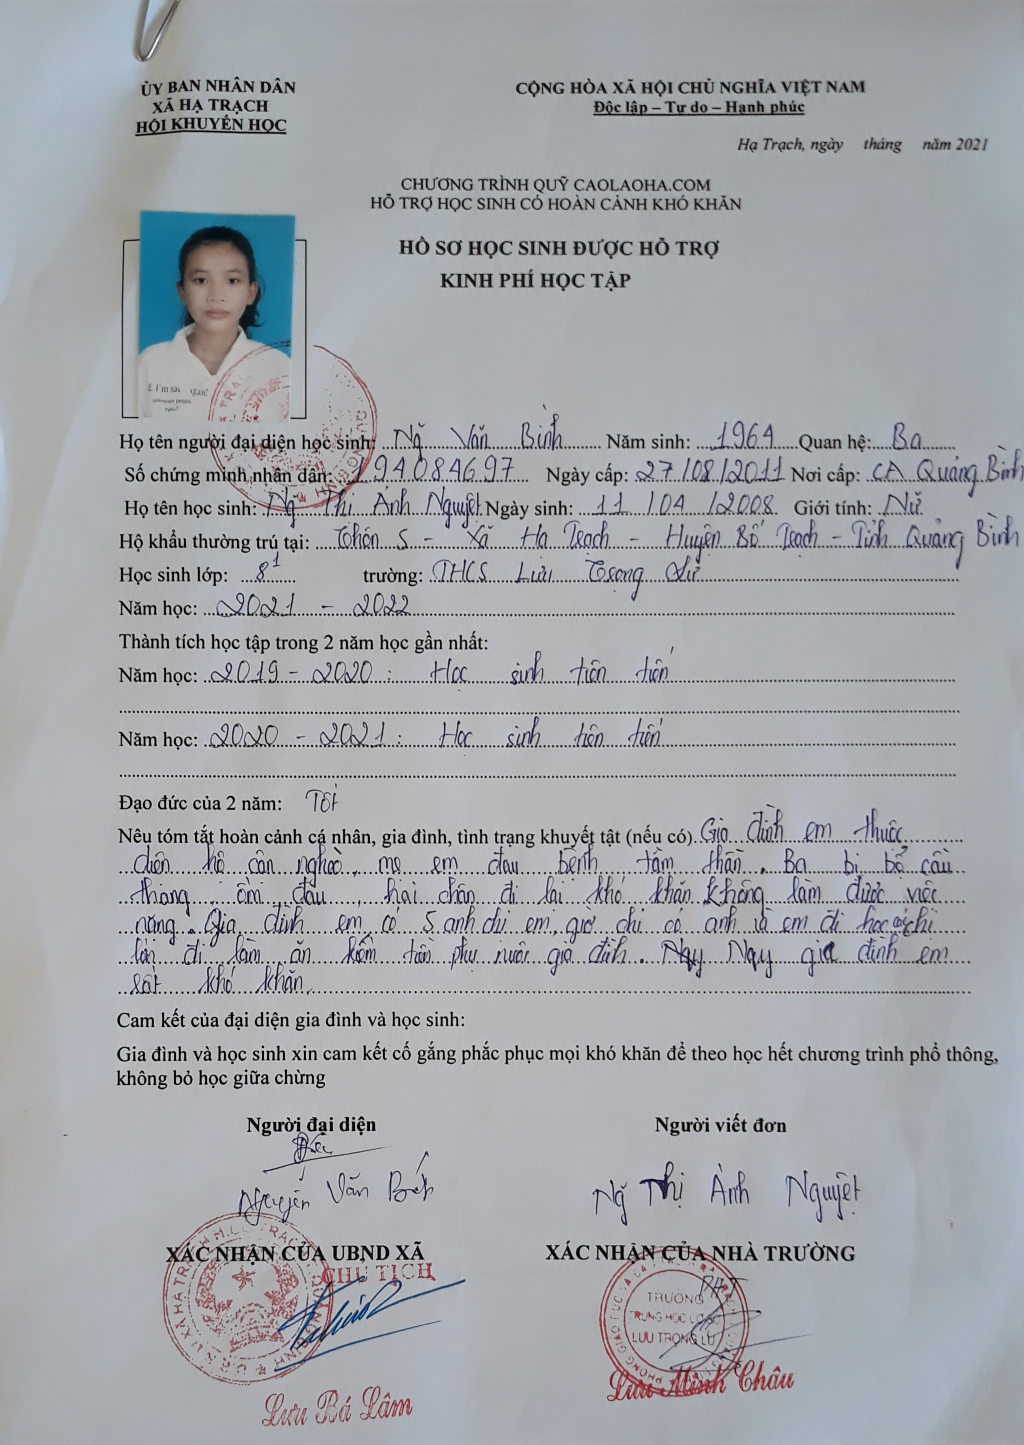 ỦY BAN NHÂN DÂN
XÃ HẠ TRẠCH
HỘI KHUYẾN HỌC
CỘNG HÒA XÃ HỘI CHỦ NGHĨA VIỆT NAM
Độc lập – Tự do – Hạnh phúc
Hạ Trạch, ngày tháng năm 2021
CHƯƠNG TRÌNH QUỸ CAOLAOHA.COM
HỖ TRỢ HỌC SINH CÓ HOÀN CẢNH KHÓ KHĂN
HỒ SƠ HỌC SINH ĐƯỢC HỖ TRỢ
KINH PHÍ HỌC TẬP
Họ tên người đại diện học sinh: Ng̃ Văn Bình Năm sinh: 1964 Quan hệ: Ba
Số chứng minh nhân dân: 194084697 Ngày cấp: 27/08/2011 Nơi cấp: CA Quảng Bình
Họ tên học sinh: Ng̃ Thị Ánh Nguyệt Ngày sinh: 11/04/2008 Giới tính: Nữ
Hộ khẩu thường trú tại: Thôn 5 - Xã Hạ Trạch - Huyện Bố Trạch - Tỉnh Quảng Bình
Học sinh lớp: 8¹ trường: THCS Lưu Trọng Lư
Năm học: 2021 - 2022
Thành tích học tập trong 2 năm học gần nhất:
Năm học: 2019 - 2020 : Học sinh tiên tiến
Năm học: 2020 - 2021 : Học sinh tiên tiến
Đạo đức của 2 năm: Tốt
Nêu tóm tắt hoàn cảnh cá nhân, gia đình, tình trạng khuyết tật (nếu có). Gia đình em thuộc
diện hộ cận nghèo, mẹ em đau bệnh tâm thần. Ba bị bổ cầu
thang, ốm đau, hai chân đi lại khó khăn không làm được việc
nặng. Gia đình em có 5 anh chị em, giờ chỉ có anh và em đi học chị
lớn đi làm ăn kiếm tiền phụ nuôi gia đình. Nay gia đình em
rất khó khăn
Cam kết của đại diện gia đình và học sinh:
Gia đình và học sinh xin cam kết cố gắng phắc phục mọi khó khăn để theo học hết chương trình phổ thông,
không bỏ học giữa chừng
Người đại diện
Người viết đơn
Nguyễn Văn
Ng̃ Thị Ành Nguyệt
XÁC NHẬN CỦA UBND XÃ
XÁC NHẬN CỦA NHÀ TRƯỜNG
CHỦ TỊCH
TRƯỜNG
TRUNG HỌC CƠ SỞ
LƯU TRỌNG LƯ
Lưu Bá Lâm
Lưu Minh Châu